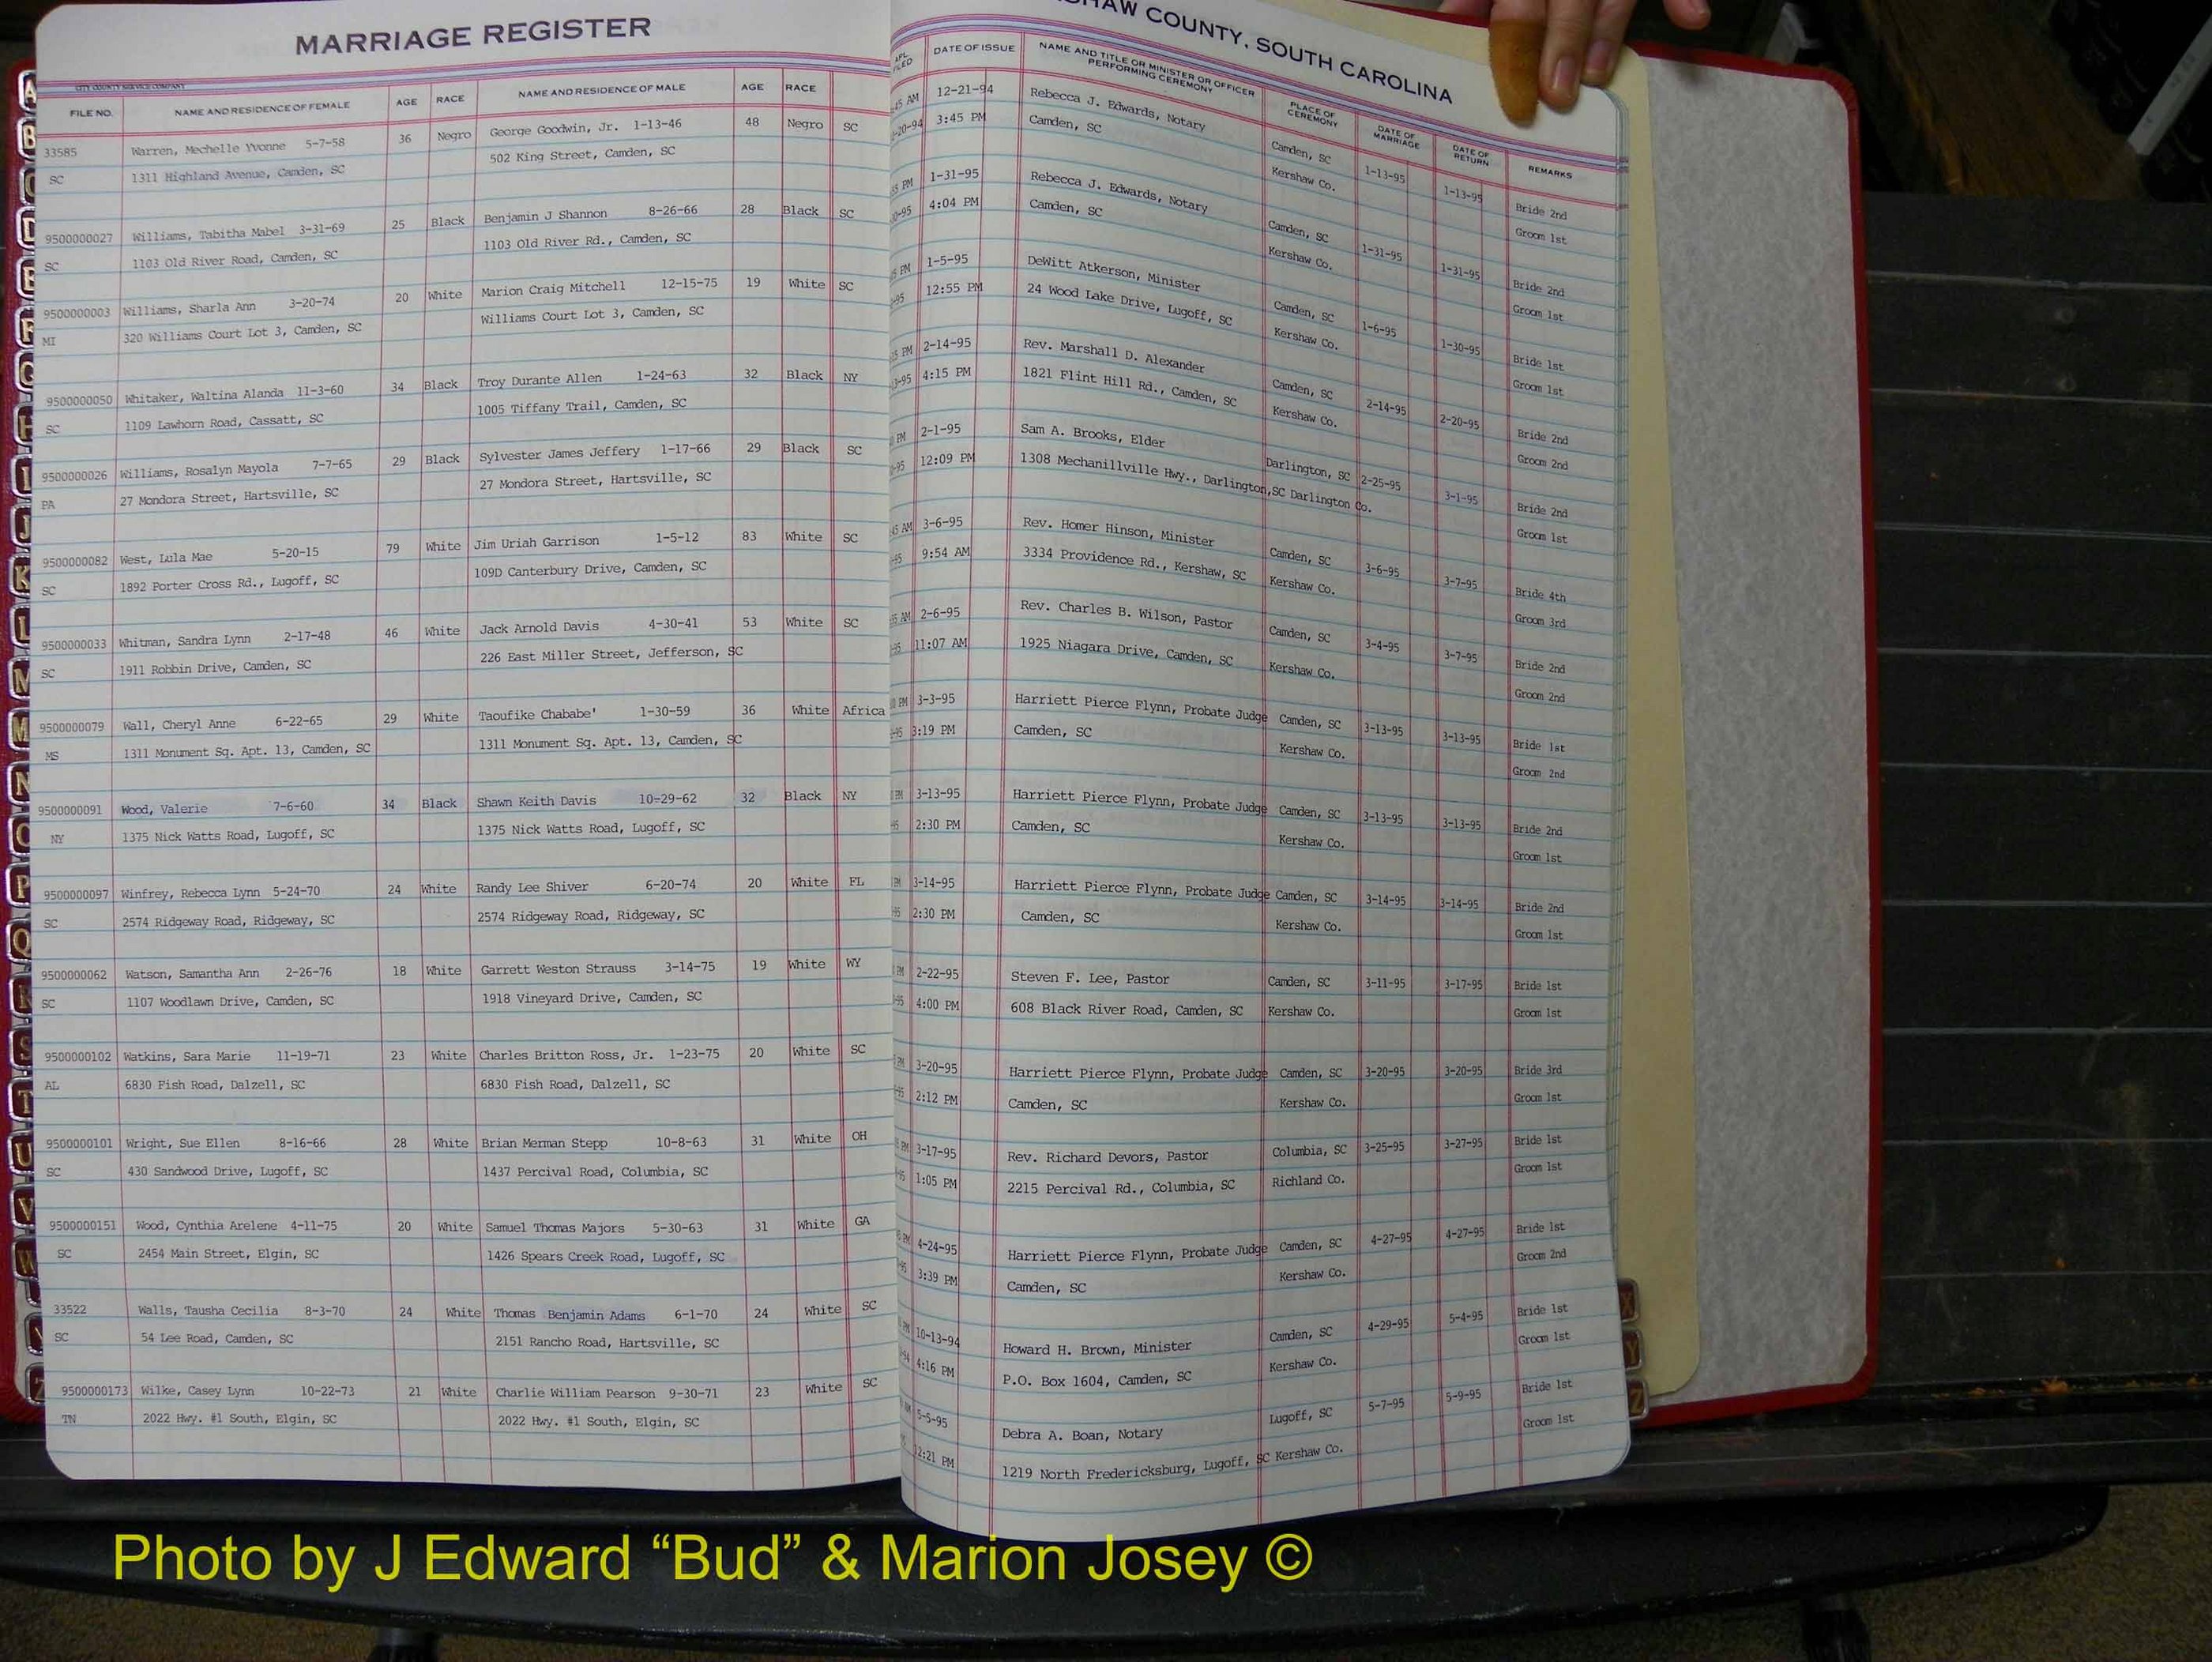 MARRIAGE REGISTER
CITY COUNTY SERVICE COMPANY
FILE NO. NAME AND RESIDENCE OF FEMALE AGE RACE NAME AND RESIDENCE OF MALE AGE RACE
33585 Warren, Mechelle Yvonne 5-7-58 36 Negro George Goodwin, Jr. 1-13-46 48 Negro SC
SC 1311 Highland Avenue, Camden, SC 502 King Street, Camden, SC
9500000027 Williams, Tabitha Mabel 3-31-69 25 Black Benjamin J Shannon 8-26-66 28 Black SC
SC 1103 Old River Road, Camden, SC 1103 Old River Rd., Camden, SC
9500000003 Williams, Sharla Ann 3-20-74 20 White Marion Craig Mitchell 12-15-75 19 White SC
MI 320 Williams Court Lot 3, Camden, SC Williams Court Lot 3, Camden, SC
9500000050 Whitaker, Waltina Alanda 11-3-60 34 Black Troy Durante Allen 1-24-63 32 Black NY
SC 1109 Lawhorn Road, Cassatt, SC 1005 Tiffany Trail, Camden, SC
9500000026 Williams, Rosalyn Mayola 7-7-65 29 Black Sylvester James Jeffery 1-17-66 29 Black SC
PA 27 Mondora Street, Hartsville, SC 27 Mondora Street, Hartsville, SC
9500000082 West, Lula Mae 5-20-15 79 White Jim Uriah Garrison 1-5-12 83 White SC
SC 1892 Porter Cross Rd., Lugoff, SC 109D Canterbury Drive, Camden, SC
9500000033 Whitman, Sandra Lynn 2-17-48 46 White Jack Arnold Davis 4-30-41 53 White SC
SC 1911 Robbin Drive, Camden, SC 226 East Miller Street, Jefferson, SC
9500000079 Wall, Cheryl Anne 6-22-65 29 White Taoufike Chababe' 1-30-59 36 White Africa
MS 1311 Monument Sq. Apt. 13, Camden, SC 1311 Monument Sq. Apt. 13, Camden, SC
9500000091 Wood, Valerie 7-6-60 34 Black Shawn Keith Davis 10-29-62 32 Black NY
NY 1375 Nick Watts Road, Lugoff, SC 1375 Nick Watts Road, Lugoff, SC
9500000097 Winfrey, Rebecca Lynn 5-24-70 24 White Randy Lee Shiver 6-20-74 20 White FL
SC 2574 Ridgeway Road, Ridgeway, SC 2574 Ridgeway Road, Ridgeway, SC
9500000062 Watson, Samantha Ann 2-26-76 18 White Garrett Weston Strauss 3-14-75 19 White WY
SC 1107 Woodlawn Drive, Camden, SC 1918 Vineyard Drive, Camden, SC
9500000102 Watkins, Sara Marie 11-19-71 23 White Charles Britton Ross, Jr. 1-23-75 20 White SC
AL 6830 Fish Road, Dalzell, SC 6830 Fish Road, Dalzell, SC
9500000101 Wright, Sue Ellen 8-16-66 28 White Brian Merman Stepp 10-8-63 31 White OH
SC 430 Sandwood Drive, Lugoff, SC 1437 Percival Road, Columbia, SC
9500000151 Wood, Cynthia Arelene 4-11-75 20 White Samuel Thomas Majors 5-30-63 31 White GA
SC 2454 Main Street, Elgin, SC 1426 Spears Creek Road, Lugoff, SC
33522 Walls, Tausha Cecilia 8-3-70 24 White Thomas Benjamin Adams 6-1-70 24 White SC
SC 54 Lee Road, Camden, SC 2151 Rancho Road, Hartsville, SC
9500000173 Wilke, Casey Lynn 10-22-73 21 White Charlie William Pearson 9-30-71 23 White SC
TN 2022 Hwy. #1 South, Elgin, SC 2022 Hwy. #1 South, Elgin, SC
COUNTY, SOUTH CAROLINA
DATE OF ISSUE NAME AND TITLE OR MINISTER OR OFFICER PERFORMING CEREMONY PLACE OF CEREMONY DATE OF MARRIAGE DATE OF RETURN REMARKS
12-21-94 Rebecca J. Edwards, Notary Camden, SC 1-13-95 1-13-95 Bride 2nd
3:45 PM Camden, SC Kershaw Co. Groom 1st
1-31-95 Rebecca J. Edwards, Notary Camden, SC 1-31-95 1-31-95 Bride 2nd
4:04 PM Camden, SC Kershaw Co. Groom 1st
1-5-95 DeWitt Atkerson, Minister Camden, SC 1-6-95 1-30-95 Bride 1st
12:55 PM 24 Wood Lake Drive, Lugoff, SC Kershaw Co. Groom 1st
2-14-95 Rev. Marshall D. Alexander Camden, SC 2-14-95 2-20-95 Bride 2nd
4:15 PM 1821 Flint Hill Rd., Camden, SC Kershaw Co. Groom 2nd
2-1-95 Sam A. Brooks, Elder Darlington, SC 2-25-95 3-1-95 Bride 2nd
12:09 PM 1308 Mechanillville Hwy., Darlington,SC Darlington Co. Groom 1st
3-6-95 Rev. Homer Hinson, Minister Camden, SC 3-6-95 3-7-95 Bride 4th
9:54 AM 3334 Providence Rd., Kershaw, SC Kershaw Co. Groom 3rd
2-6-95 Rev. Charles B. Wilson, Pastor Camden, SC 3-4-95 3-7-95 Bride 2nd
11:07 AM 1925 Niagara Drive, Camden, SC Kershaw Co. Groom 2nd
3-3-95 Harriett Pierce Flynn, Probate Judge Camden, SC 3-13-95 3-13-95 Bride 1st
3:19 PM Camden, SC Kershaw Co. Groom 2nd
3-13-95 Harriett Pierce Flynn, Probate Judge Camden, SC 3-13-95 3-13-95 Bride 2nd
2:30 PM Camden, SC Kershaw Co. Groom 1st
3-14-95 Harriett Pierce Flynn, Probate Judge Camden, SC 3-14-95 3-14-95 Bride 2nd
2:30 PM Camden, SC Kershaw Co. Groom 1st
2-22-95 Steven F. Lee, Pastor Camden, SC 3-11-95 3-17-95 Bride 1st
4:00 PM 608 Black River Road, Camden, SC Kershaw Co. Groom 1st
3-20-95 Harriett Pierce Flynn, Probate Judge Camden, SC 3-20-95 3-20-95 Bride 3rd
2:12 PM Camden, SC Kershaw Co. Groom 1st
3-17-95 Rev. Richard Devors, Pastor Columbia, SC 3-25-95 3-27-95 Bride 1st
1:05 PM 2215 Percival Rd., Columbia, SC Richland Co. Groom 1st
4-24-95 Harriett Pierce Flynn, Probate Judge Camden, SC 4-27-95 4-27-95 Bride 1st
3:39 PM Camden, SC Kershaw Co. Groom 2nd
10-13-94 Howard H. Brown, Minister Camden, SC 4-29-95 5-4-95 Bride 1st
4:16 PM P.O. Box 1604, Camden, SC Kershaw Co. Groom 1st
5-5-95 Debra A. Boan, Notary Lugoff, SC 5-7-95 5-9-95 Bride 1st
12:21 PM 1219 North Fredericksburg, Lugoff, SC Kershaw Co. Groom 1st
Photo by J Edward “Bud” & Marion Josey ©